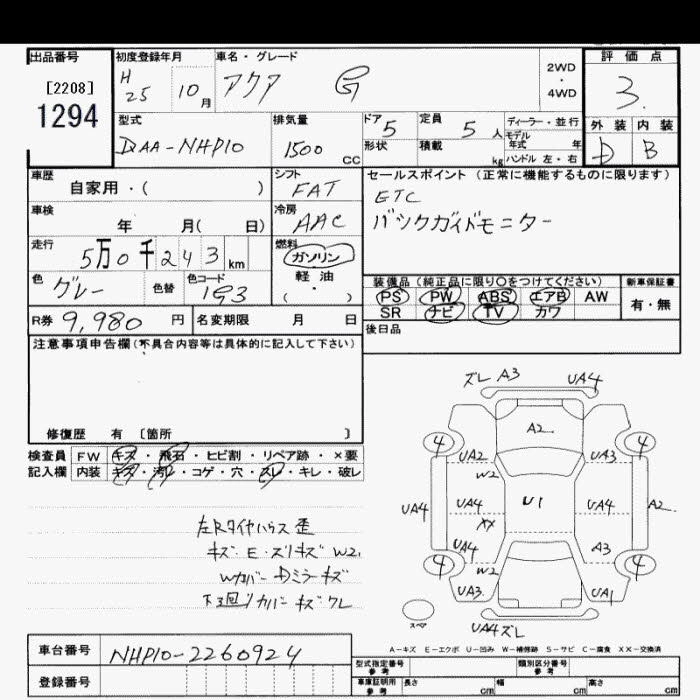 出品番号 初度登録年月 車名・グレード 評価点
[2208] H 25 10月 アクア G 2WD・4WD 3.
1294
型式 排気量 ドア 5 定員 5人 ディーラー・並行 外装 内装
DAA-NHP10 1500 CC 形状 積載 kg モデル年式 年 D B
ハンドル 左・右
車歴 シフト セールスポイント (正常に機能するものに限ります)
自家用・( ) FAT ETC
車検 冷房 バックガイドモニター
年 月( 日) AAC
走行 燃料
5万0千243km ガソリン
色 グレー 色替 色コード 1G3 軽油・( )
装備品 (純正品に限り○をつけてください) 新車保証書
PS PW ABS エアB AW 有・無
SR ナビ TV カワ
R券 9,980円 名変期限 月 日 後日品
注意事項申告欄(不具合内容等は具体的に記入して下さい)
修復歴 有 〔箇所 〕
検査員 FW キズ・飛石・ヒビ割・リペア跡・×要
記入欄 内装 キズ・汚レ・コゲ・穴・スレ・キレ・破レ
ズレ A3 UA4
A2
4 4
UA2 UA3
W2
UA4 UA4 U1 UA4 A2
XX
UA4 A3
4 4
W2
UA3 UA1
スペア
UA4ズレ
左Rタイヤハウス歪
キズ E・ズリキズ W2,
Wカバー Dミラーキズ
下回リカバーキズワレ
A-キズ E-エクボ U-凹み W-補修跡 S-サビ C-腐食 XX-交換済
車台番号 NHP10-2260924
登録番号
型式指定番号 参考 類別区分番号 参考
車庫証明用 参考 長さ cm 幅 cm 高さ cm